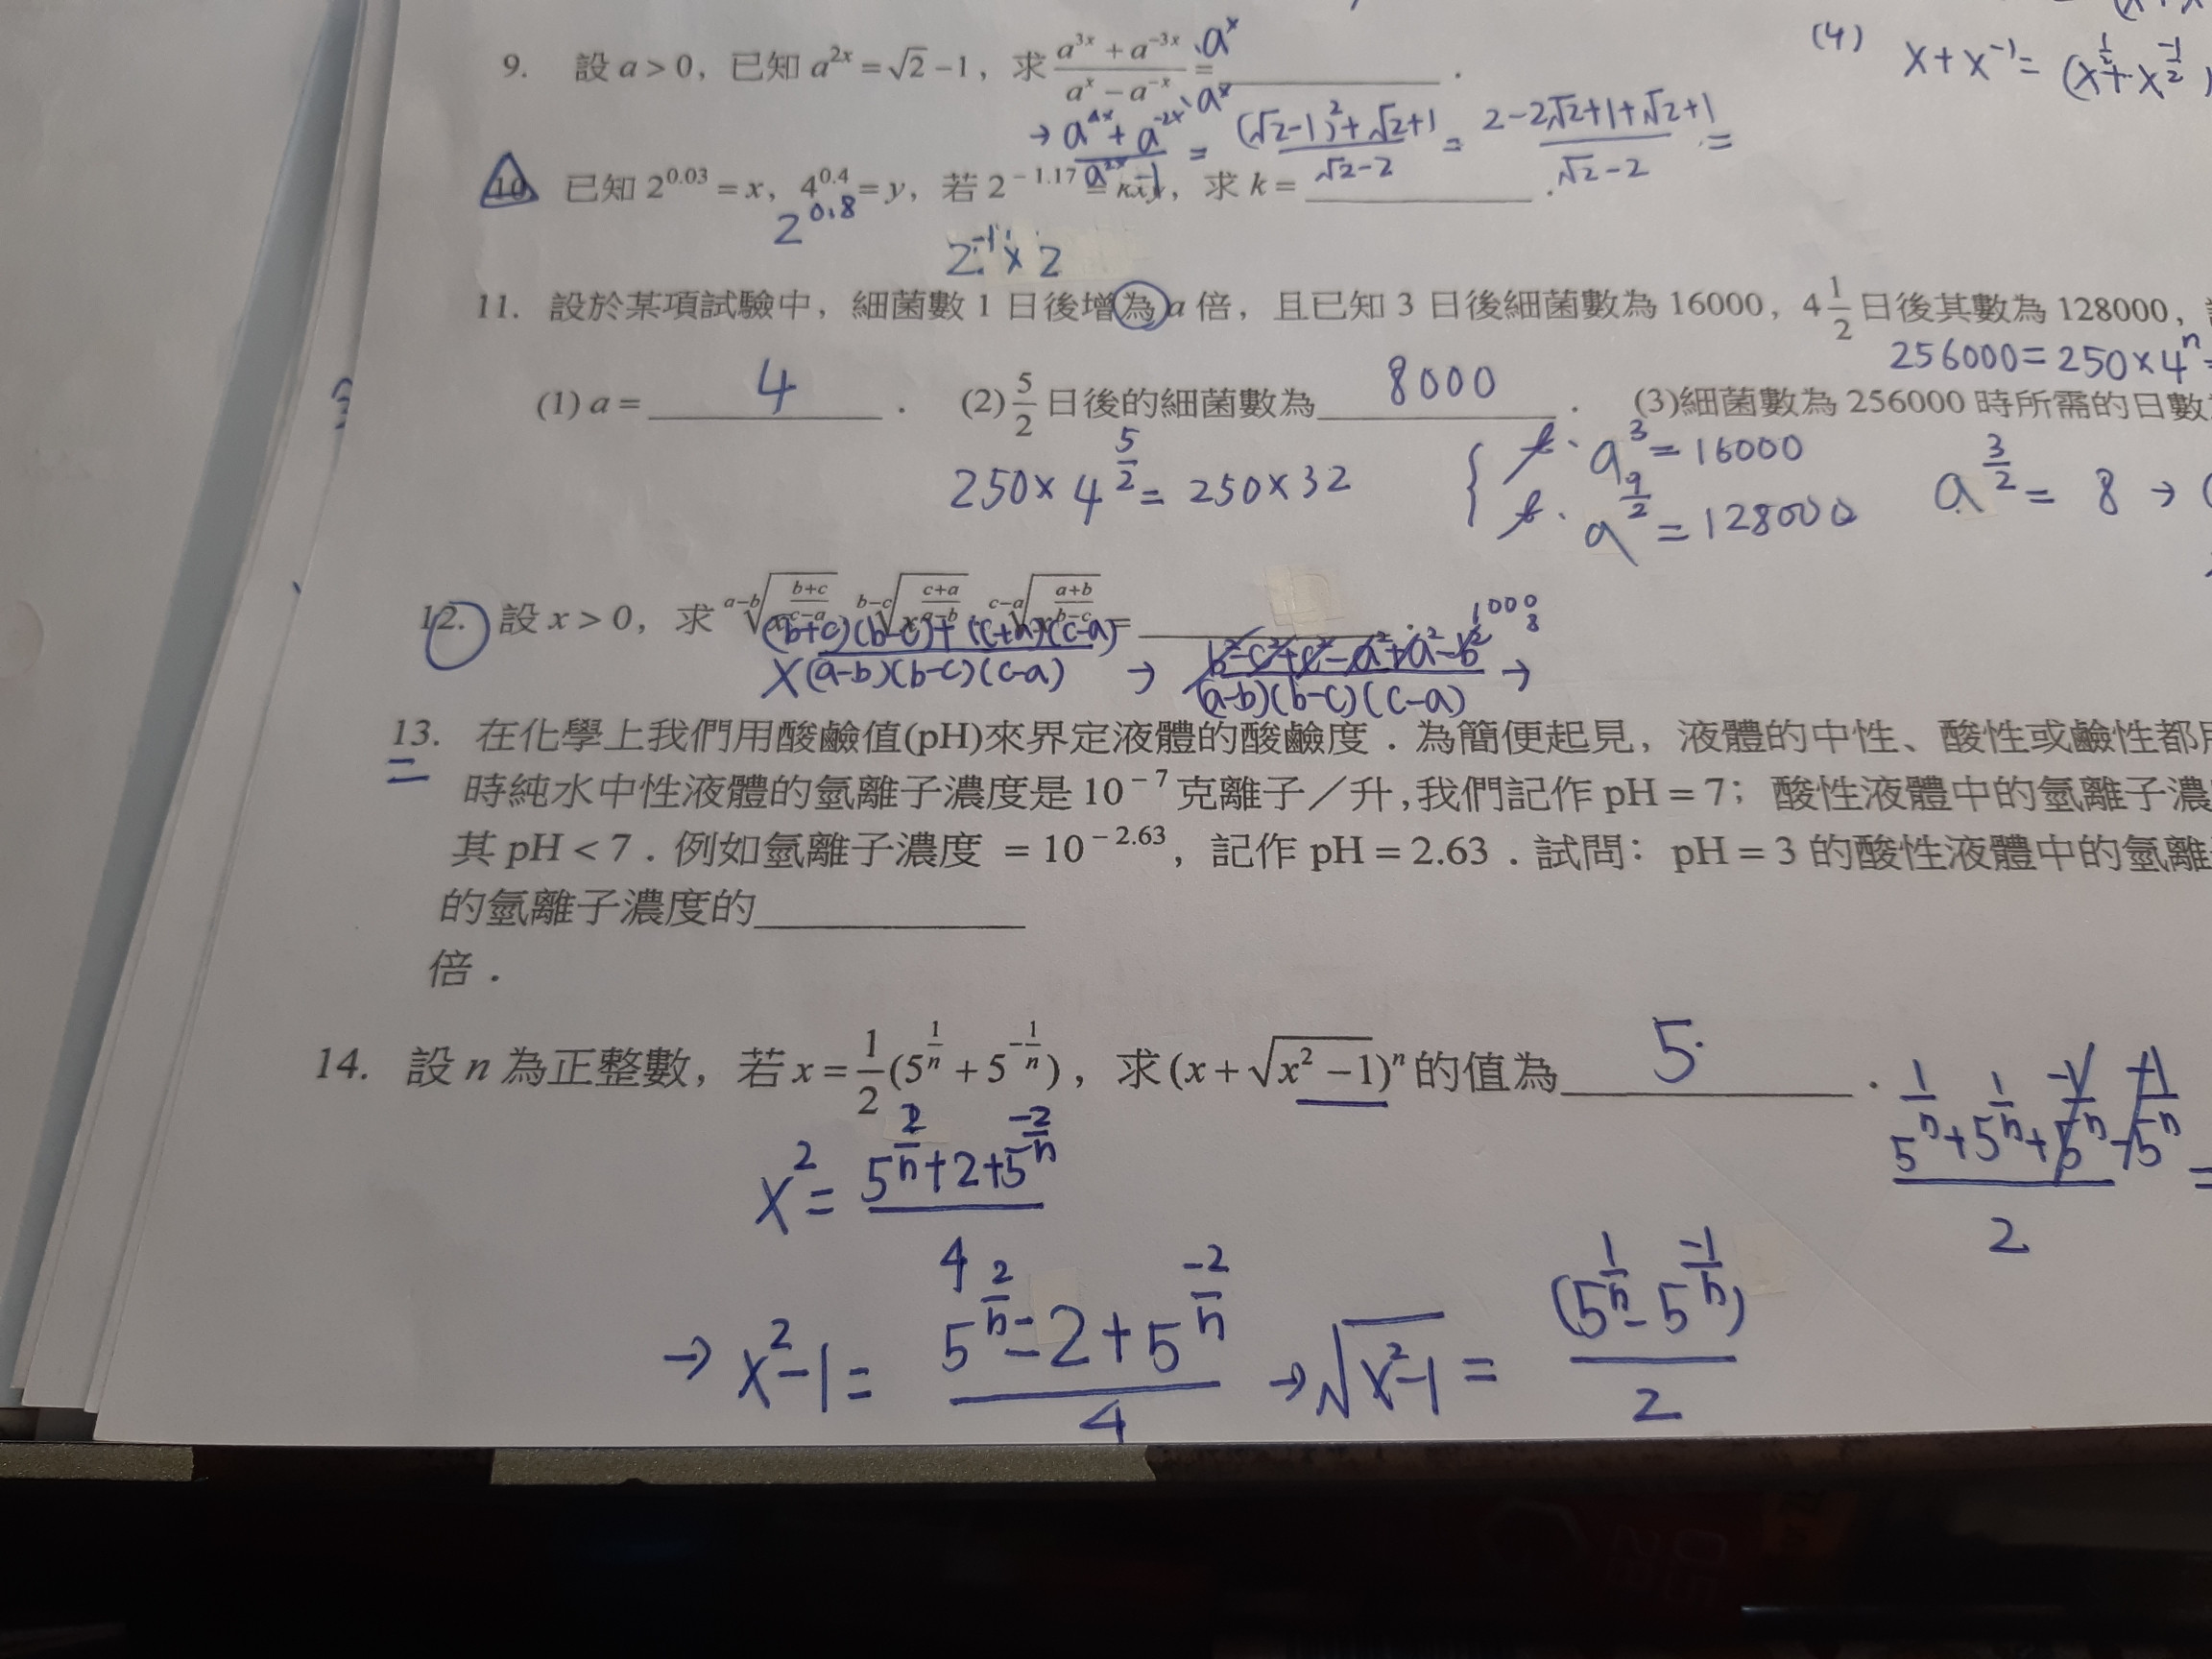 (4) x + x⁻¹ = (x^(1/2) + x^(-1/2)
9. 設 a > 0，已知 a^(2x) = √2 − 1，求 (a^(3x) + a^(−3x))/(a^x − a^(−x)) = ______．
·a^x
·a^x
→ (a^(4x) + a^(−2x))/(a^(2x) − 1) = ((√2−1)² + √2+1)/(√2−2) = (2−2√2+1+√2+1)/(√2−2) =
10. 已知 2^0.03 = x，4^0.4 = y，若 2^(−1.17) = kxy，求 k = ______．
2^0.8
2^-1 × 2
11. 設於某項試驗中，細菌數 1 日後增為 a 倍，且已知 3 日後細菌數為 16000，4 1/2 日後其數為 128000，
256000 = 250 × 4^n =
(1) a = 4 ． (2) 5/2 日後的細菌數為 8000 ． (3)細菌數為 256000 時所需的日數
250 × 4^(5/2) = 250 × 32
{ k · a^3 = 16000
k · a^(9/2) = 128000
a^(3/2) = 8 →
12. 設 x > 0，求 ^(a−b)√(x^((b+c)/(c−a))) · ^(b−c)√(x^((c+a)/(a−b))) · ^(c−a)√(x^((a+b)/(b−c))) = ______．
1000
8
(b+c)(b−c)+(c+a)(c−a)
x (a−b)(b−c)(c−a) → (b²−c²+c²−a²+a²−b²)/((a−b)(b−c)(c−a)) →
13. 在化學上我們用酸鹼值(pH)來界定液體的酸鹼度．為簡便起見，液體的中性、酸性或鹼性都用
時純水中性液體的氫離子濃度是 10^(−7) 克離子／升，我們記作 pH = 7；酸性液體中的氫離子濃
其 pH < 7．例如氫離子濃度 = 10^(−2.63)，記作 pH = 2.63．試問：pH = 3 的酸性液體中的氫離
的氫離子濃度的______
倍．
14. 設 n 為正整數，若 x = 1/2 (5^(1/n) + 5^(−1/n))，求 (x + √(x² − 1))^n 的值為 5 ．
(5^(1/n) + 5^(1/n) + 5^(-1/n) − 5^(-1/n))/2 =
x² = (5^(2/n) + 2 + 5^(-2/n))/4
→ x²−1 = (5^(2/n) − 2 + 5^(-2/n))/4 → √(x²−1) = (5^(1/n) − 5^(-1/n))/2